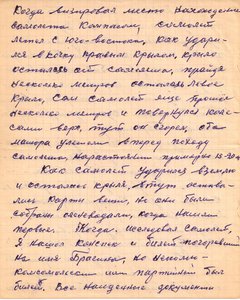 Когда визировал место нахождения
самолета Компасом, самолет
летел с юго-востока, как ударил-
ся в Сопку правым Крылом, крыло
осталось от самолета, пройдя
несколько метров осталось левое
Крыло, Сам самолет еще прошел
несколько метров и повернулся колё-
сами верх, тут он сгорел, оба
мотора улетели вперед по ходу
самолета, на расстоянии примерно 15-20 м
Как самолет ударился в землю
и остались крылья, тут остава-
лись Карты вещи, но они были
собраны , когда нашли
первые. Когда исследовал самолет,
Я нашел Кансек и билет погоревший
на имя , но не полно-
комсомольский или партийный был
билет. Все Найденные документы